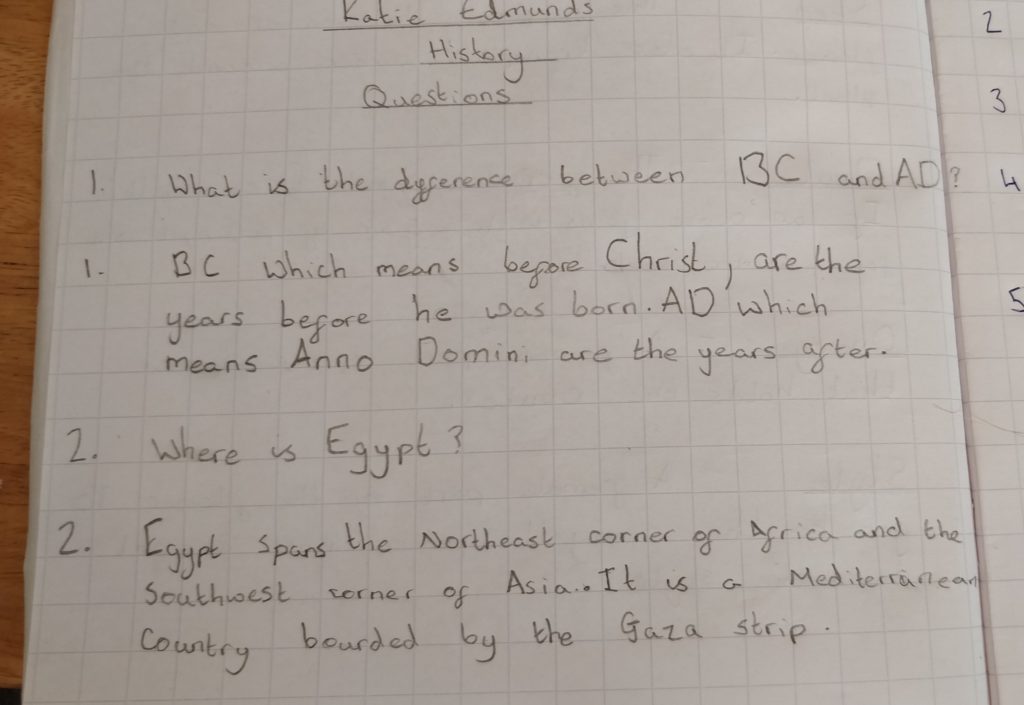 Katie Edmunds
History
Questions
1. What is the dyference between BC and AD?
1. BC which means before Christ, are the
years before he was born. AD which
means Anno Domini are the years after.
2. Where is Egypt?
2. Egypt spans the Northeast corner of Africa and the
Southwest corner of Asia.. It is a Mediterranean
Country bourded by the Gaza strip.
2
3
4
5